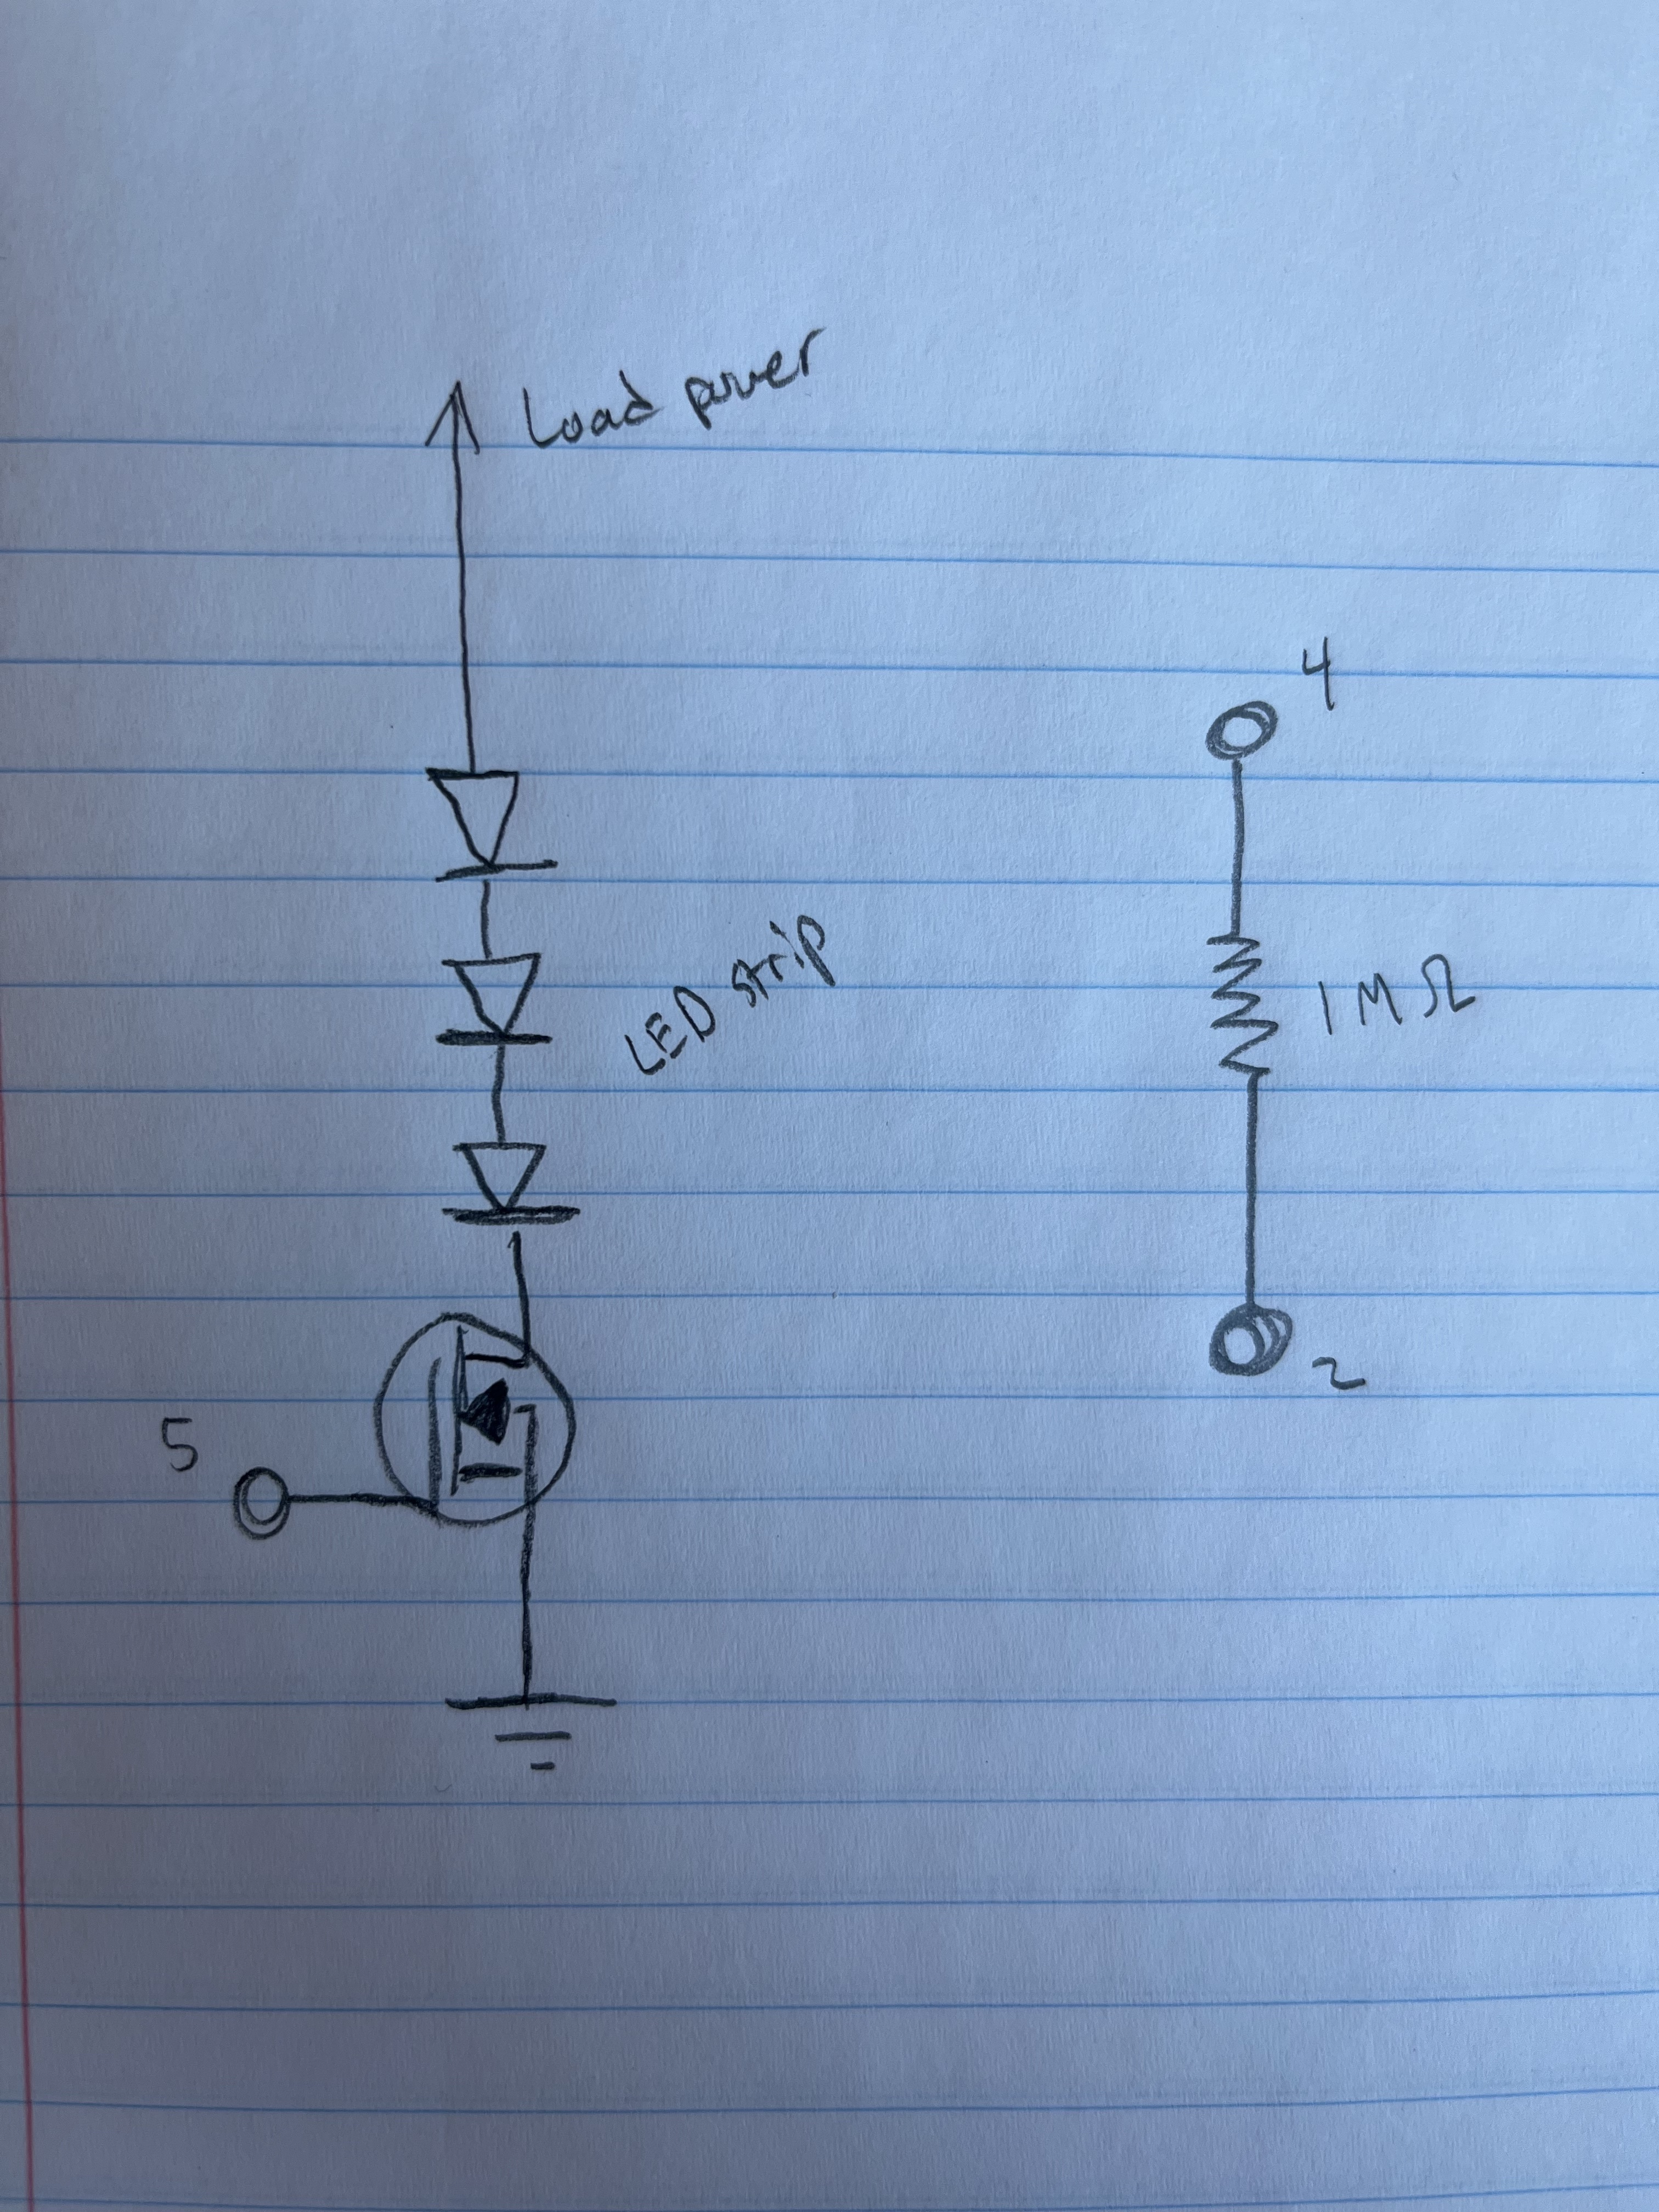 Load power
4
LED strip
1 M Ω
2
5